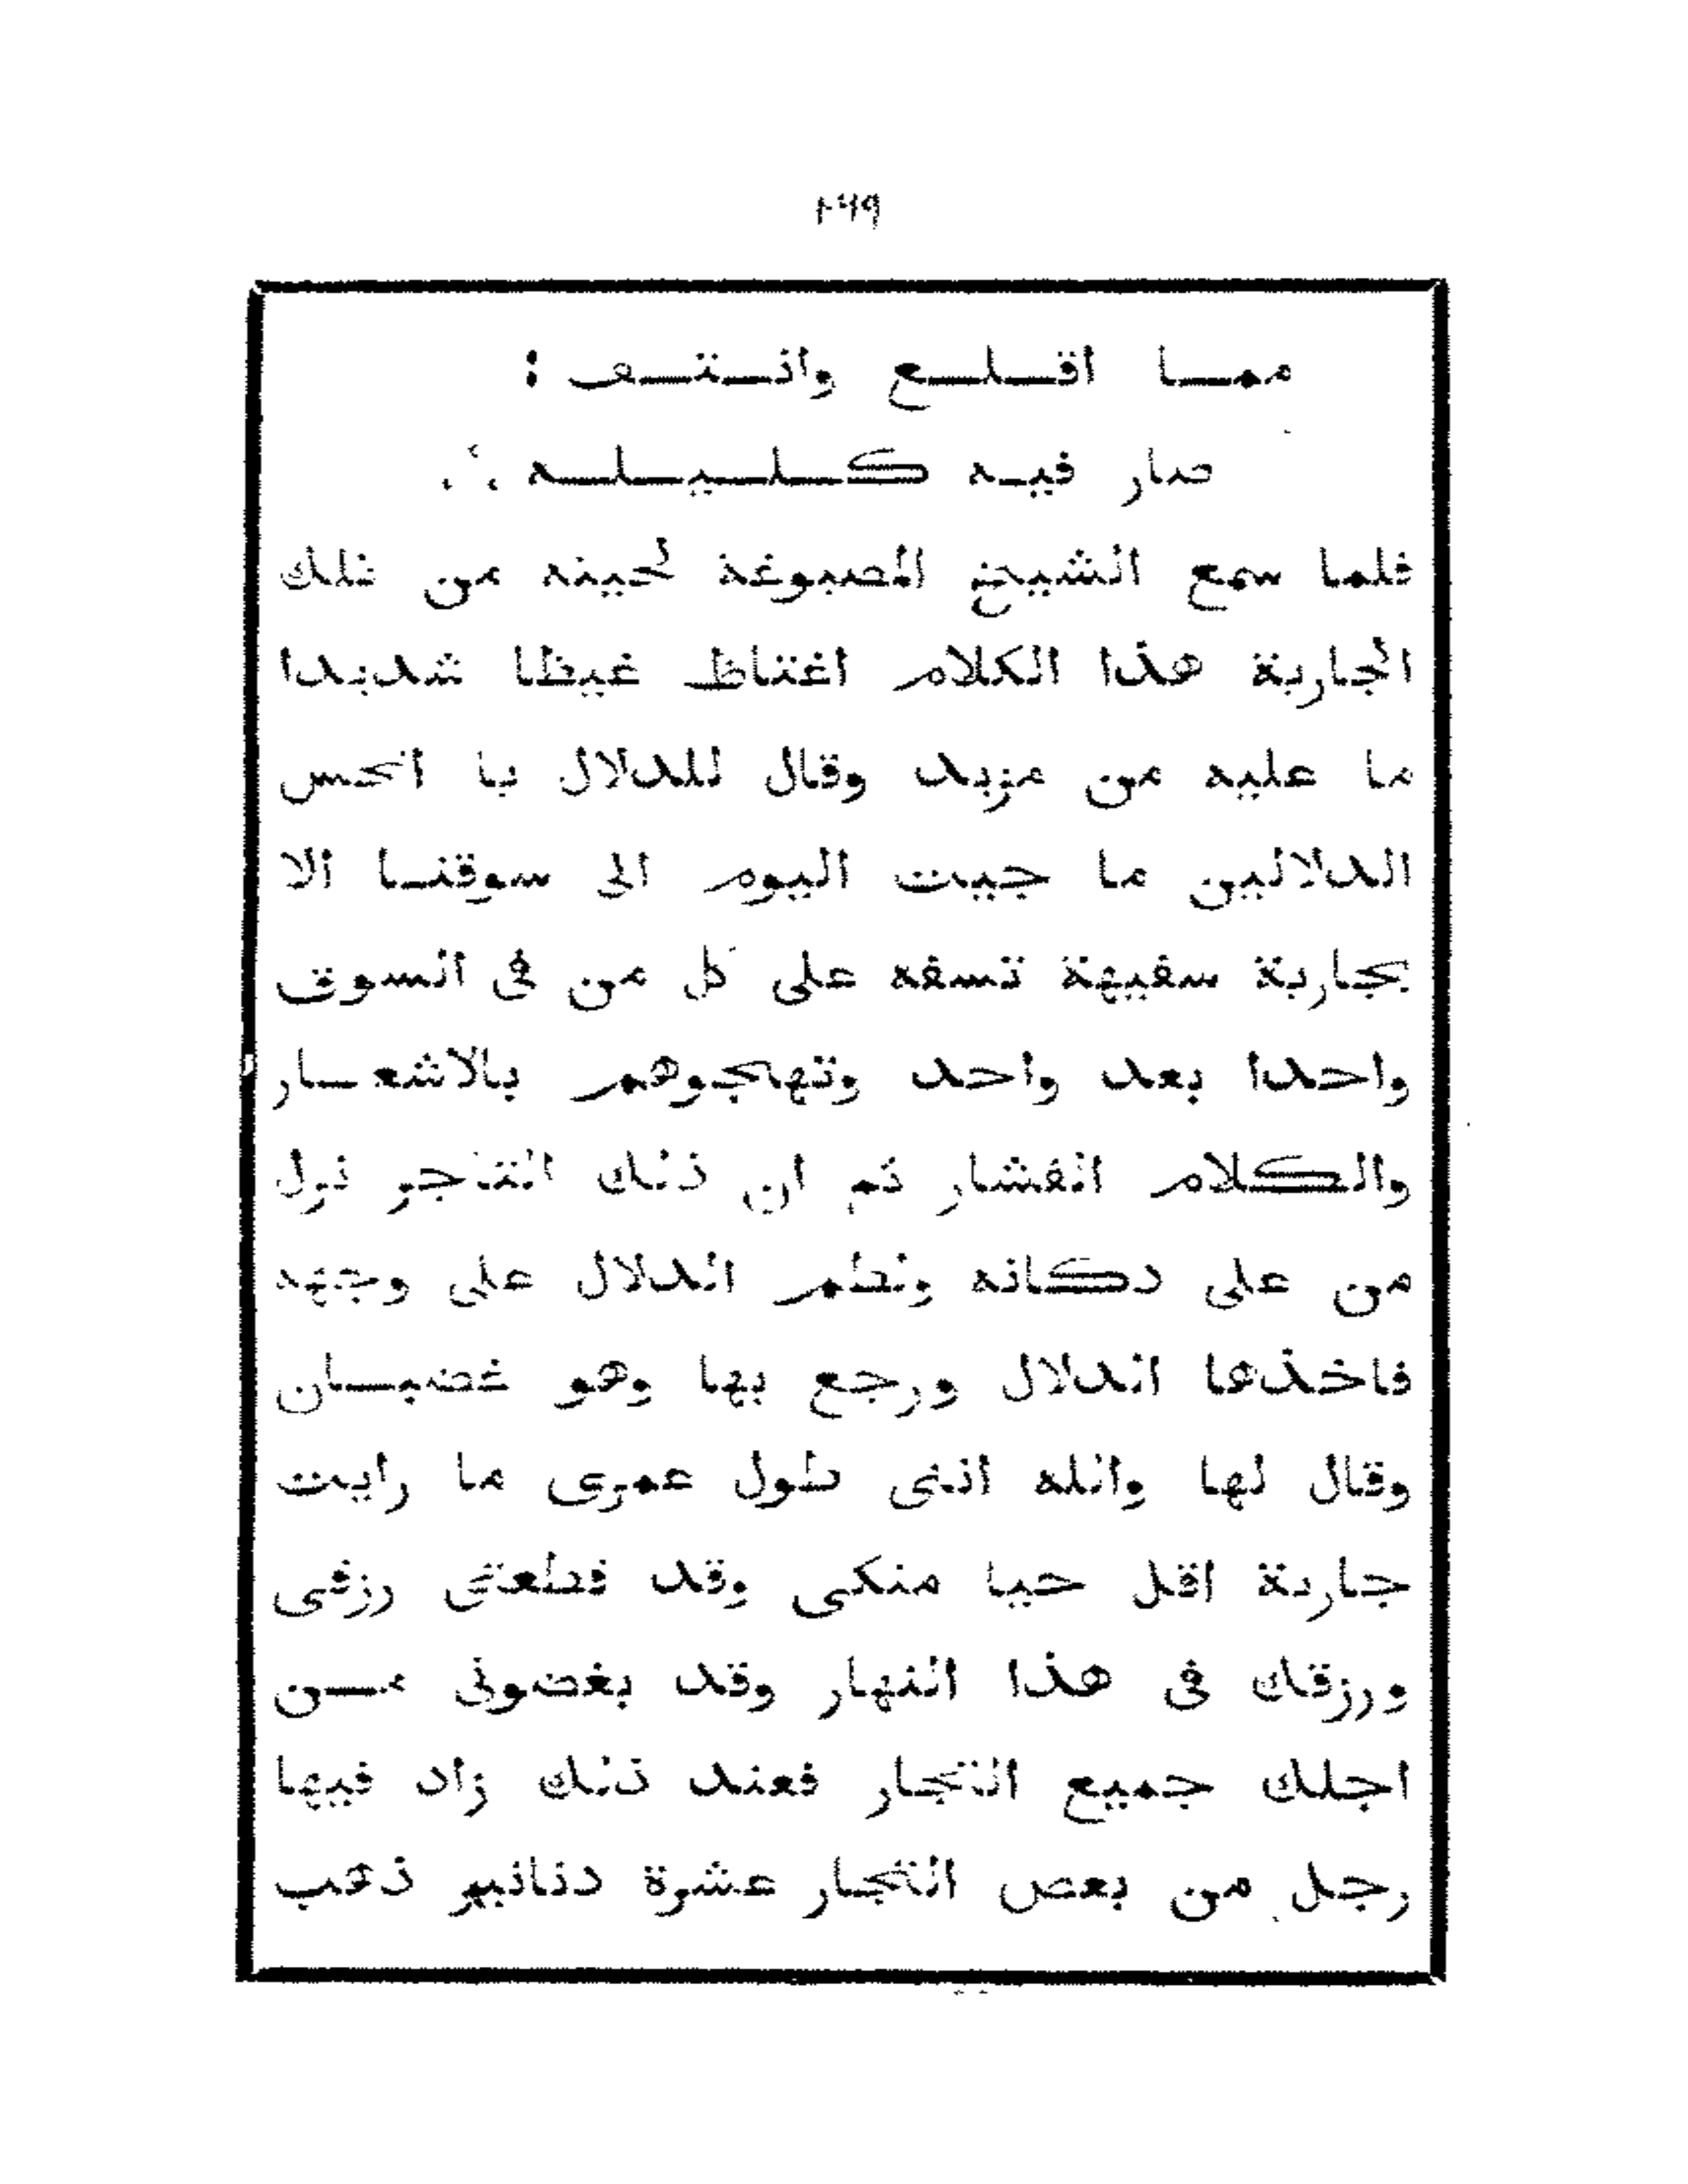 ٢٩٩
ممـا اقـلـع وانـتـف :
صار فيـه كـلـيـلـه ∴
فلما سمع الشيخ المصبوغة لحيته من تلك
الجارية هذا الكلام اغتاظ غيظا شديدا
ما عليه من مزيد وقال للدلال يا انحس
الدلالين ما جيت اليوم الى سوقنـا الا
بجارية سفيهة تسفه على كل من فى السوق
واحدا بعد واحد وتهجوهم بالاشعـار
والكلام الفشار ثم ان ذلك التاجر نزل
من على دكانه ولطم الدلال على وجهه
فاخذها الدلال ورجع بها وهو غضبـان
وقال لها والله اننى طول عمرى ما رايت
جارية اقل حيا منكى وقد قطعتى رزقى
ورزقك فى هذا النهار وقد بغضونى مـن
اجلك جميع التجار فعند ذلك زاد فيها
رجل من بعض التجار عشرة دنانير ذهب